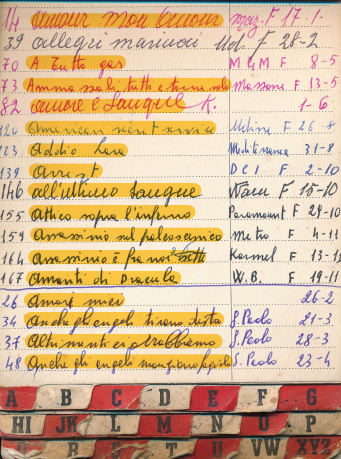 14 amour mon amour Maz. F 17-1-
39 allegri marinai Uni. F 28-2
70 A tutto gas M G M F 8-5
73 Ammazzali tutti e torna solo Maxxone F 13-5
82 amore e sangue K. 1-6
120 American secret service F 26-8
123 Addio Lara Mediterranea 31-8
139 Arrest D C I F 2-10
146 all'ultimo sangue F 15-10
155 Attico sopra l'inferno Paramount F 29-10
159 Assassinio sul palcoscenico Metro F 4-11
164 assassinio è fra noi Karmel F 13-11
167 Amanti di Dracula W.B. F 19-11
26 Amori miei 26-2
34 Anche gli angeli tirano destro S. Paolo 21-3
37 Altrimenti ci arrabbiamo S. Paolo 28-3
48 Anche gli angeli mangiano fagioli S. Paolo 23-4
A B C D E F G
HI JK L M N U P
R T U V W XYZ